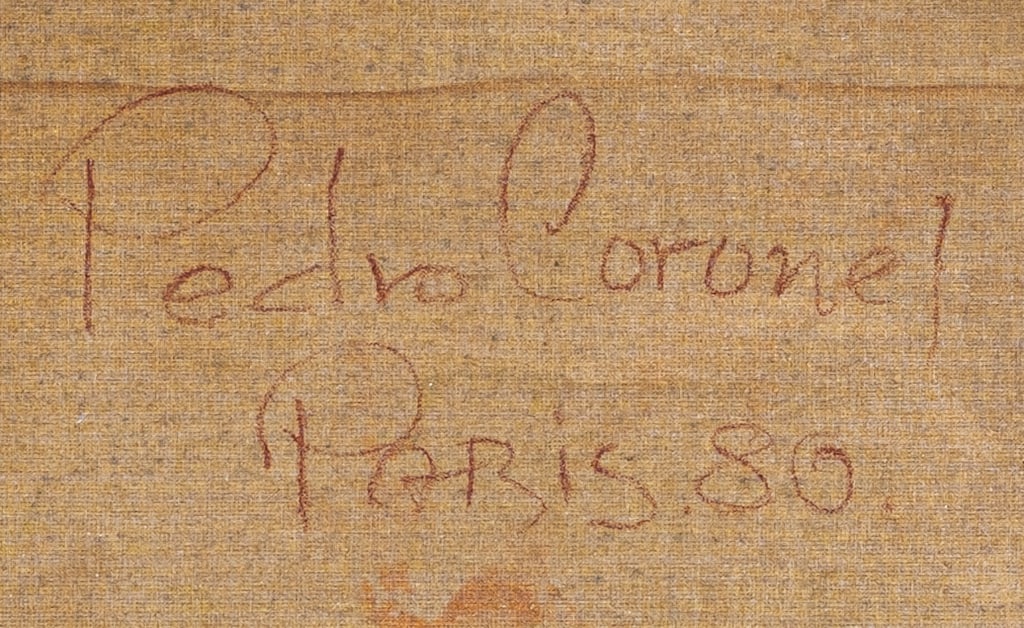 Pedro Coronel
Paris. 80.